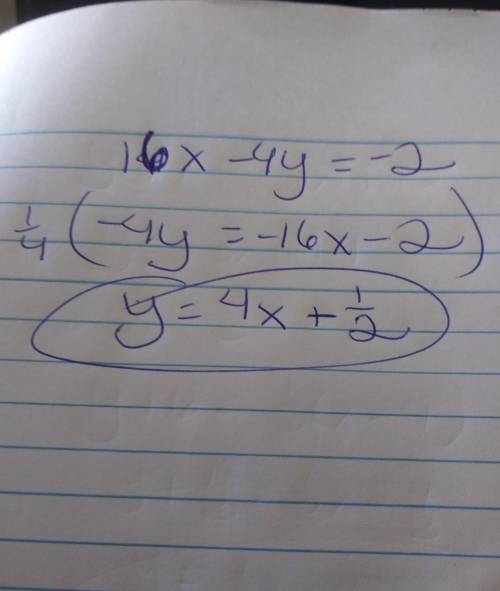 16x - 4y = -2
1/4 (-4y = -16x - 2)
y = 4x + 1/2